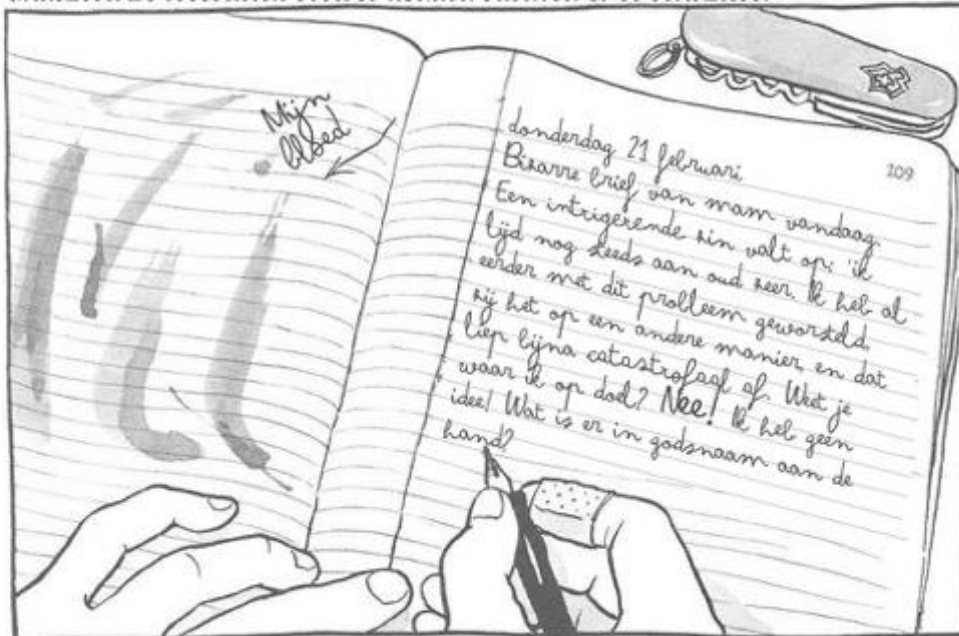 Mijn
bloed
209
donderdag 21 februari
Bizarre brief van mam vandaag.
Een intrigerende zin valt op: 'ik
lijd nog steeds aan oud zeer. Ik heb al
eerder met dit probleem geworsteld,
zij het op een andere manier, en dat
liep bijna catastrofaal af. Weet je
waar ik op doel? Nee! Ik heb geen
idee! Wat is er in godsnaam aan de
hand?